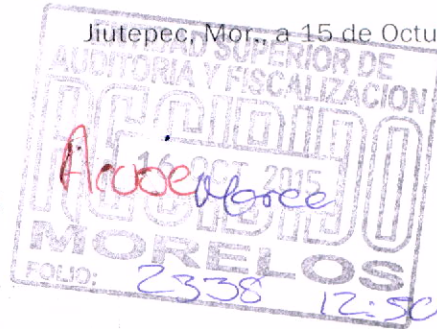 Jiutepec, Mor., a 15 de Octu
ENTIDAD SUPERIOR DE
AUDITORIA Y FISCALIZACION
RECIBIDO
16 OCT 2015
Acuse
MORELOS
FOLIO: 2338 12:50